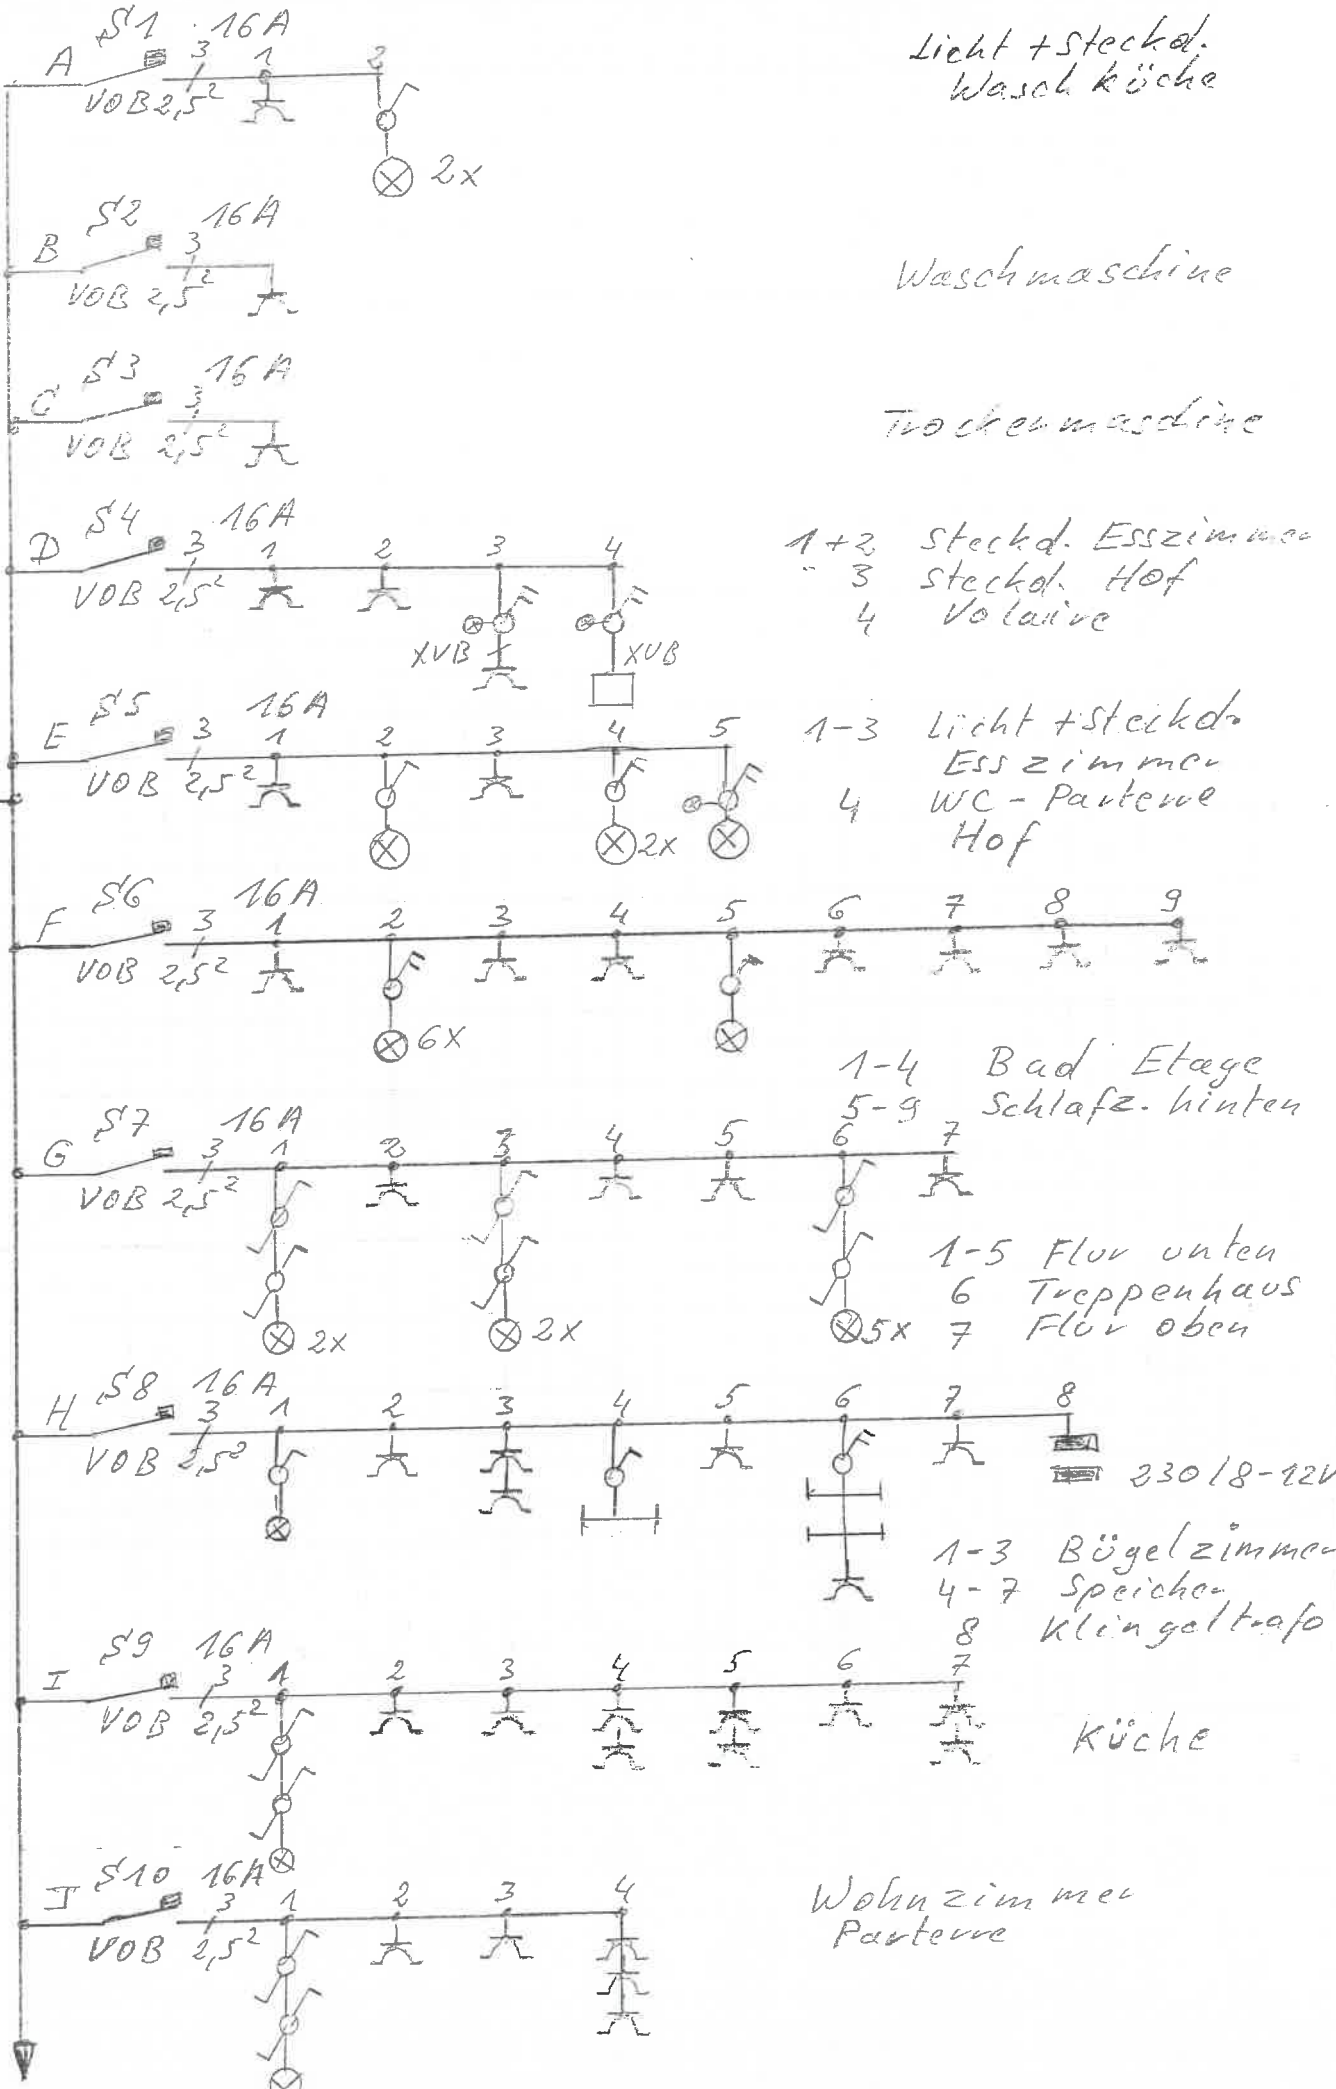 S1 16A
A 3 1 2
VOB 2,5²
2x
Licht + Steckd.
Waschküche
S2 16A
B 3
VOB 2,5²
Waschmaschine
S3 16A
C 3
VOB 2,5²
Trockenmaschine
S4 16A
D 3 1 2 3 4
VOB 2,5²
XVB XVB
1+2 Steckd. Esszimmer
3 Steckd. Hof
4 Volaire
S5 16A
E 3 1 2 3 4 5
VOB 2,5²
2x
1-3 Licht + Steckd.
Esszimmer
4 WC - Parterre
Hof
S6 16A
F 3 1 2 3 4 5 6 7 8 9
VOB 2,5²
6x
1-4 Bad Etage
5-9 Schlafz. hinten
S7 16A
G 3 1 2 3 4 5 6 7
VOB 2,5²
1-5 Flur unten
6 Treppenhaus
2x 2x 5x 7 Flur oben
S8 16A
H 3 1 2 3 4 5 6 7 8
VOB 2,5²
230/8-12V
1-3 Bügelzimmer
4-7 Speicher
8 Klingeltrafo
S9 16A
I 3 1 2 3 4 5 6 7
VOB 2,5²
Küche
S10 16A
J 3 1 2 3 4
VOB 2,5²
Wohnzimmer
Parterre